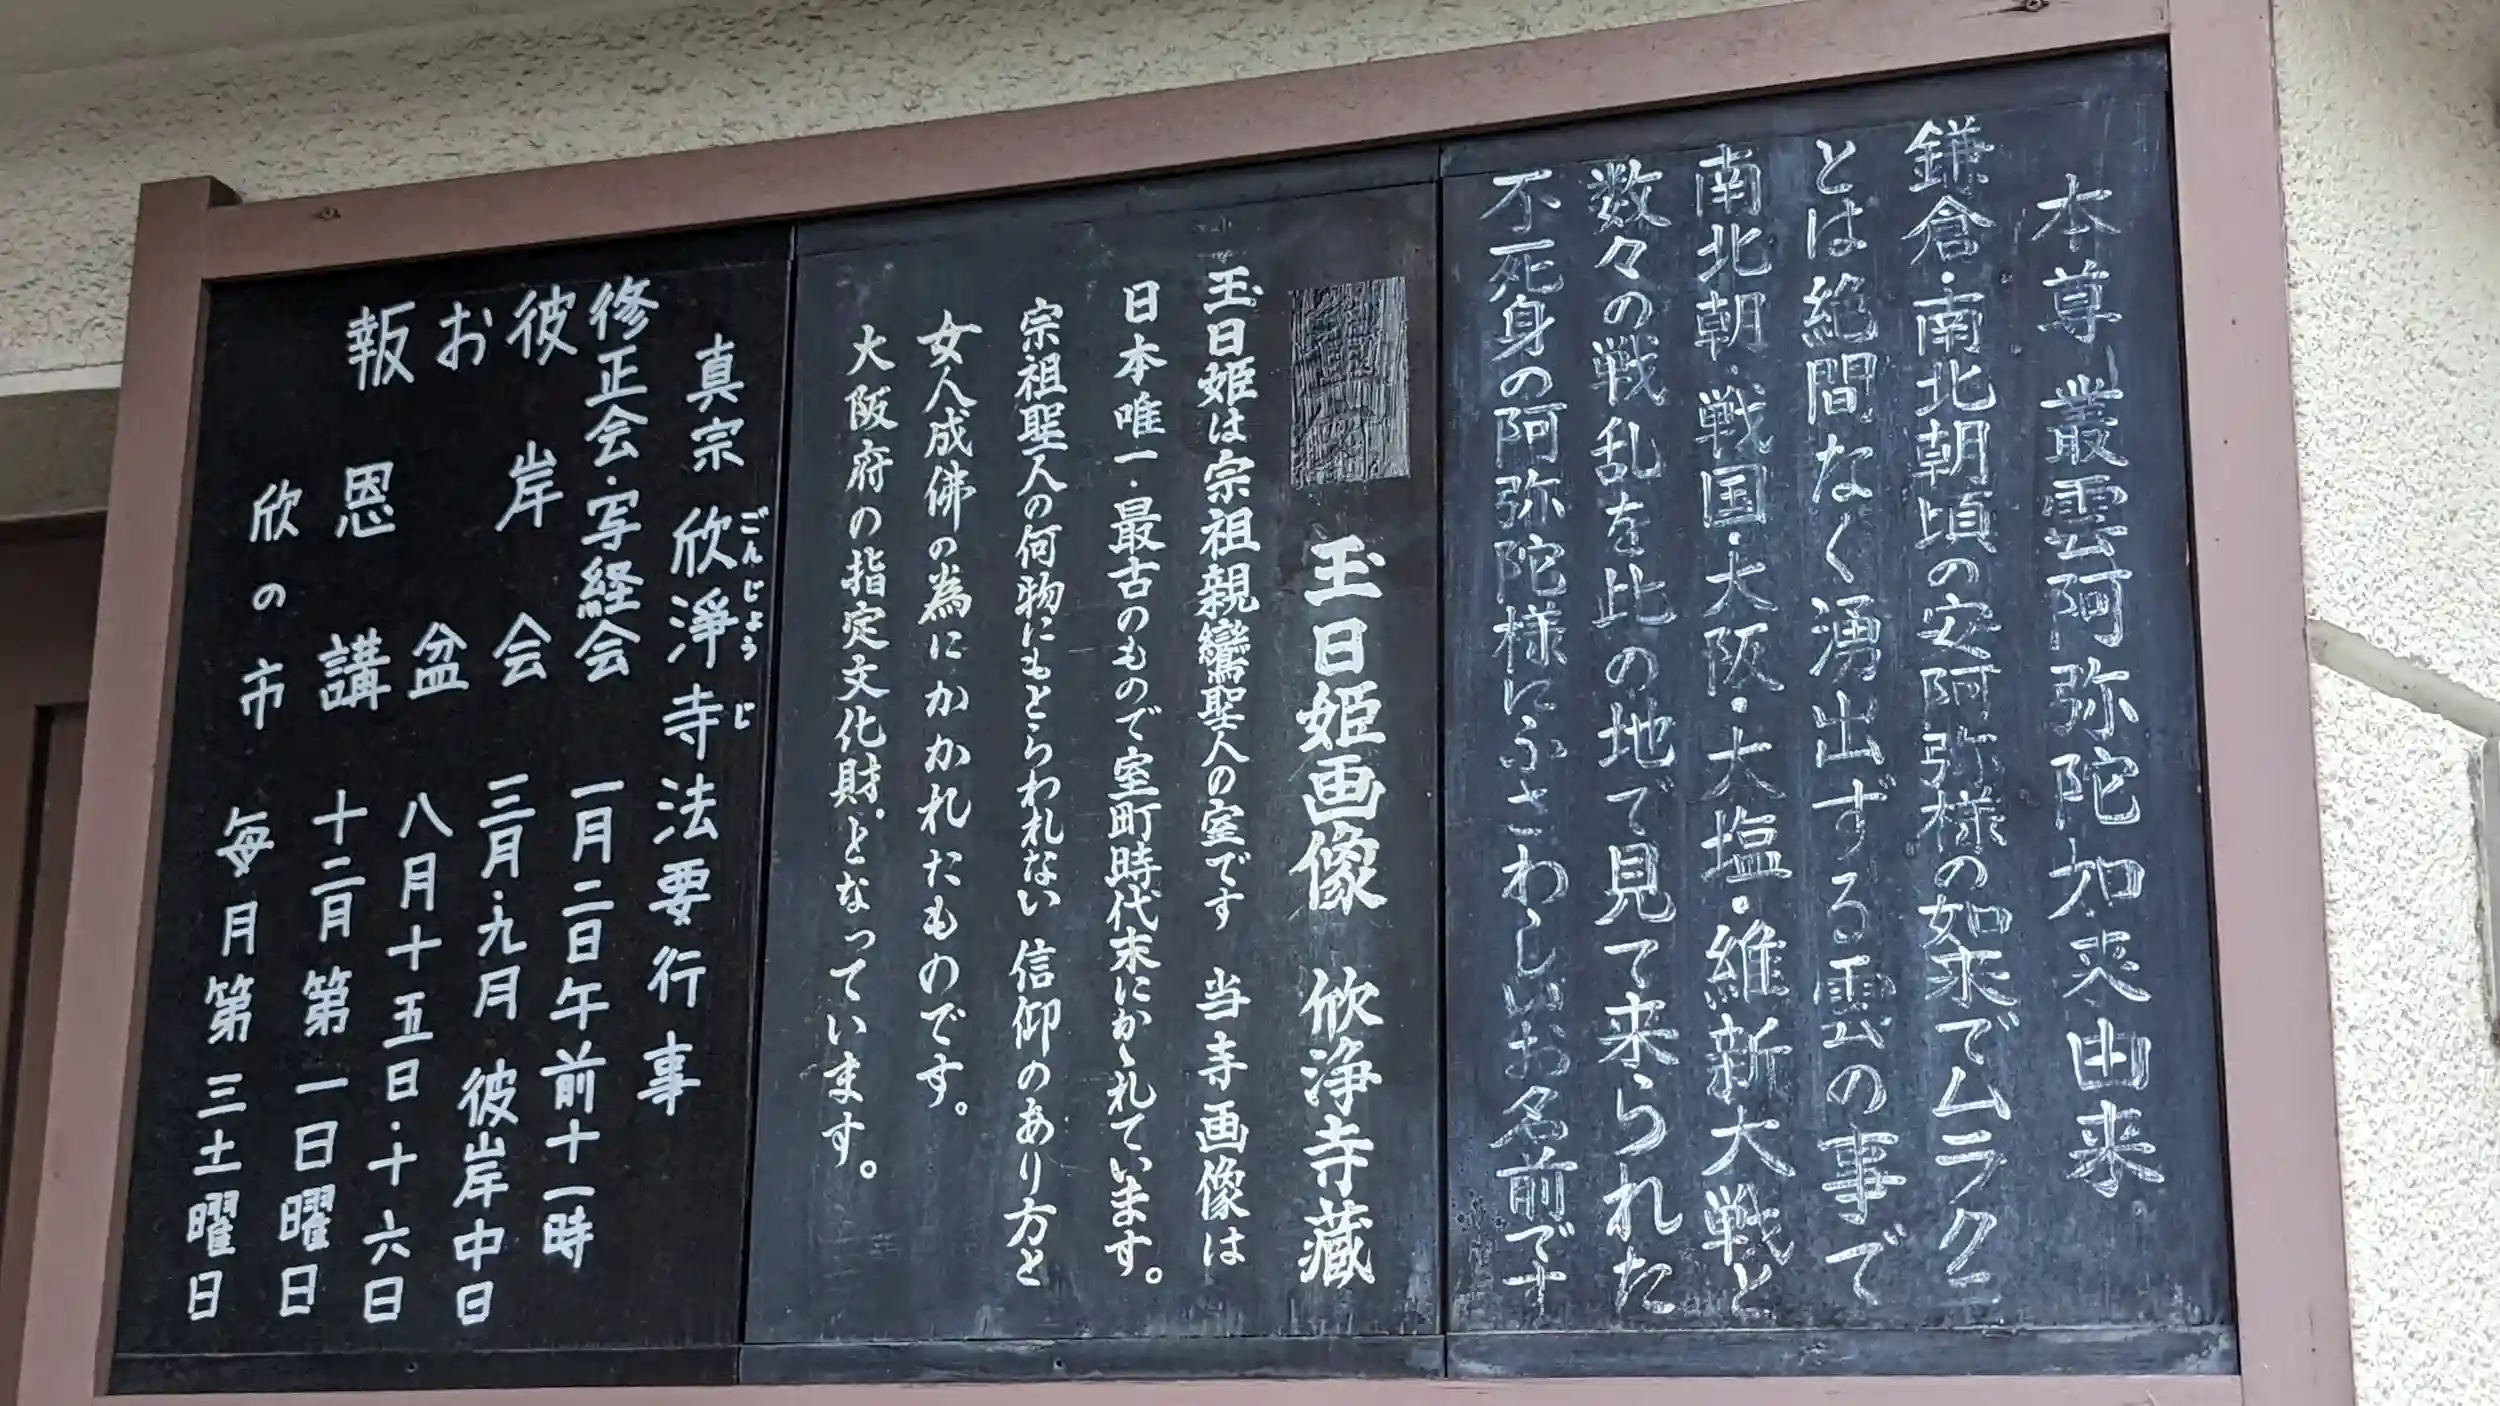 本尊 叢雲阿弥陀如来由来
鎌倉・南北朝頃の安阿弥様の如来でムラクモ
とは絶間なく湧出ずる雲の事で
南北朝・戦国・大阪・大塩・維新大戦と
数々の戦乱を此の地で見て来られた
不死身の阿弥陀様にふさわしいお名前です
玉日姫画像 欣浄寺蔵
玉日姫は宗祖親鸞聖人の室です 当寺画像は
日本唯一・最古のもので室町時代末にかゝれています。
宗祖聖人の何物にもとらわれない 信仰のあり方と
女人成佛の為にかかれたものです。
大阪府の指定文化財。となっています。
真宗 欣淨寺法要行事
ごんじょうじ
修正会・写経会 一月二日午前十一時
彼岸会 三月・九月 彼岸中日
お盆 八月十五日・十六日
報恩講 十二月第一日曜日
欣の市 毎月第三土曜日